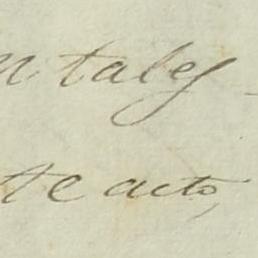 n tales -
te acto,